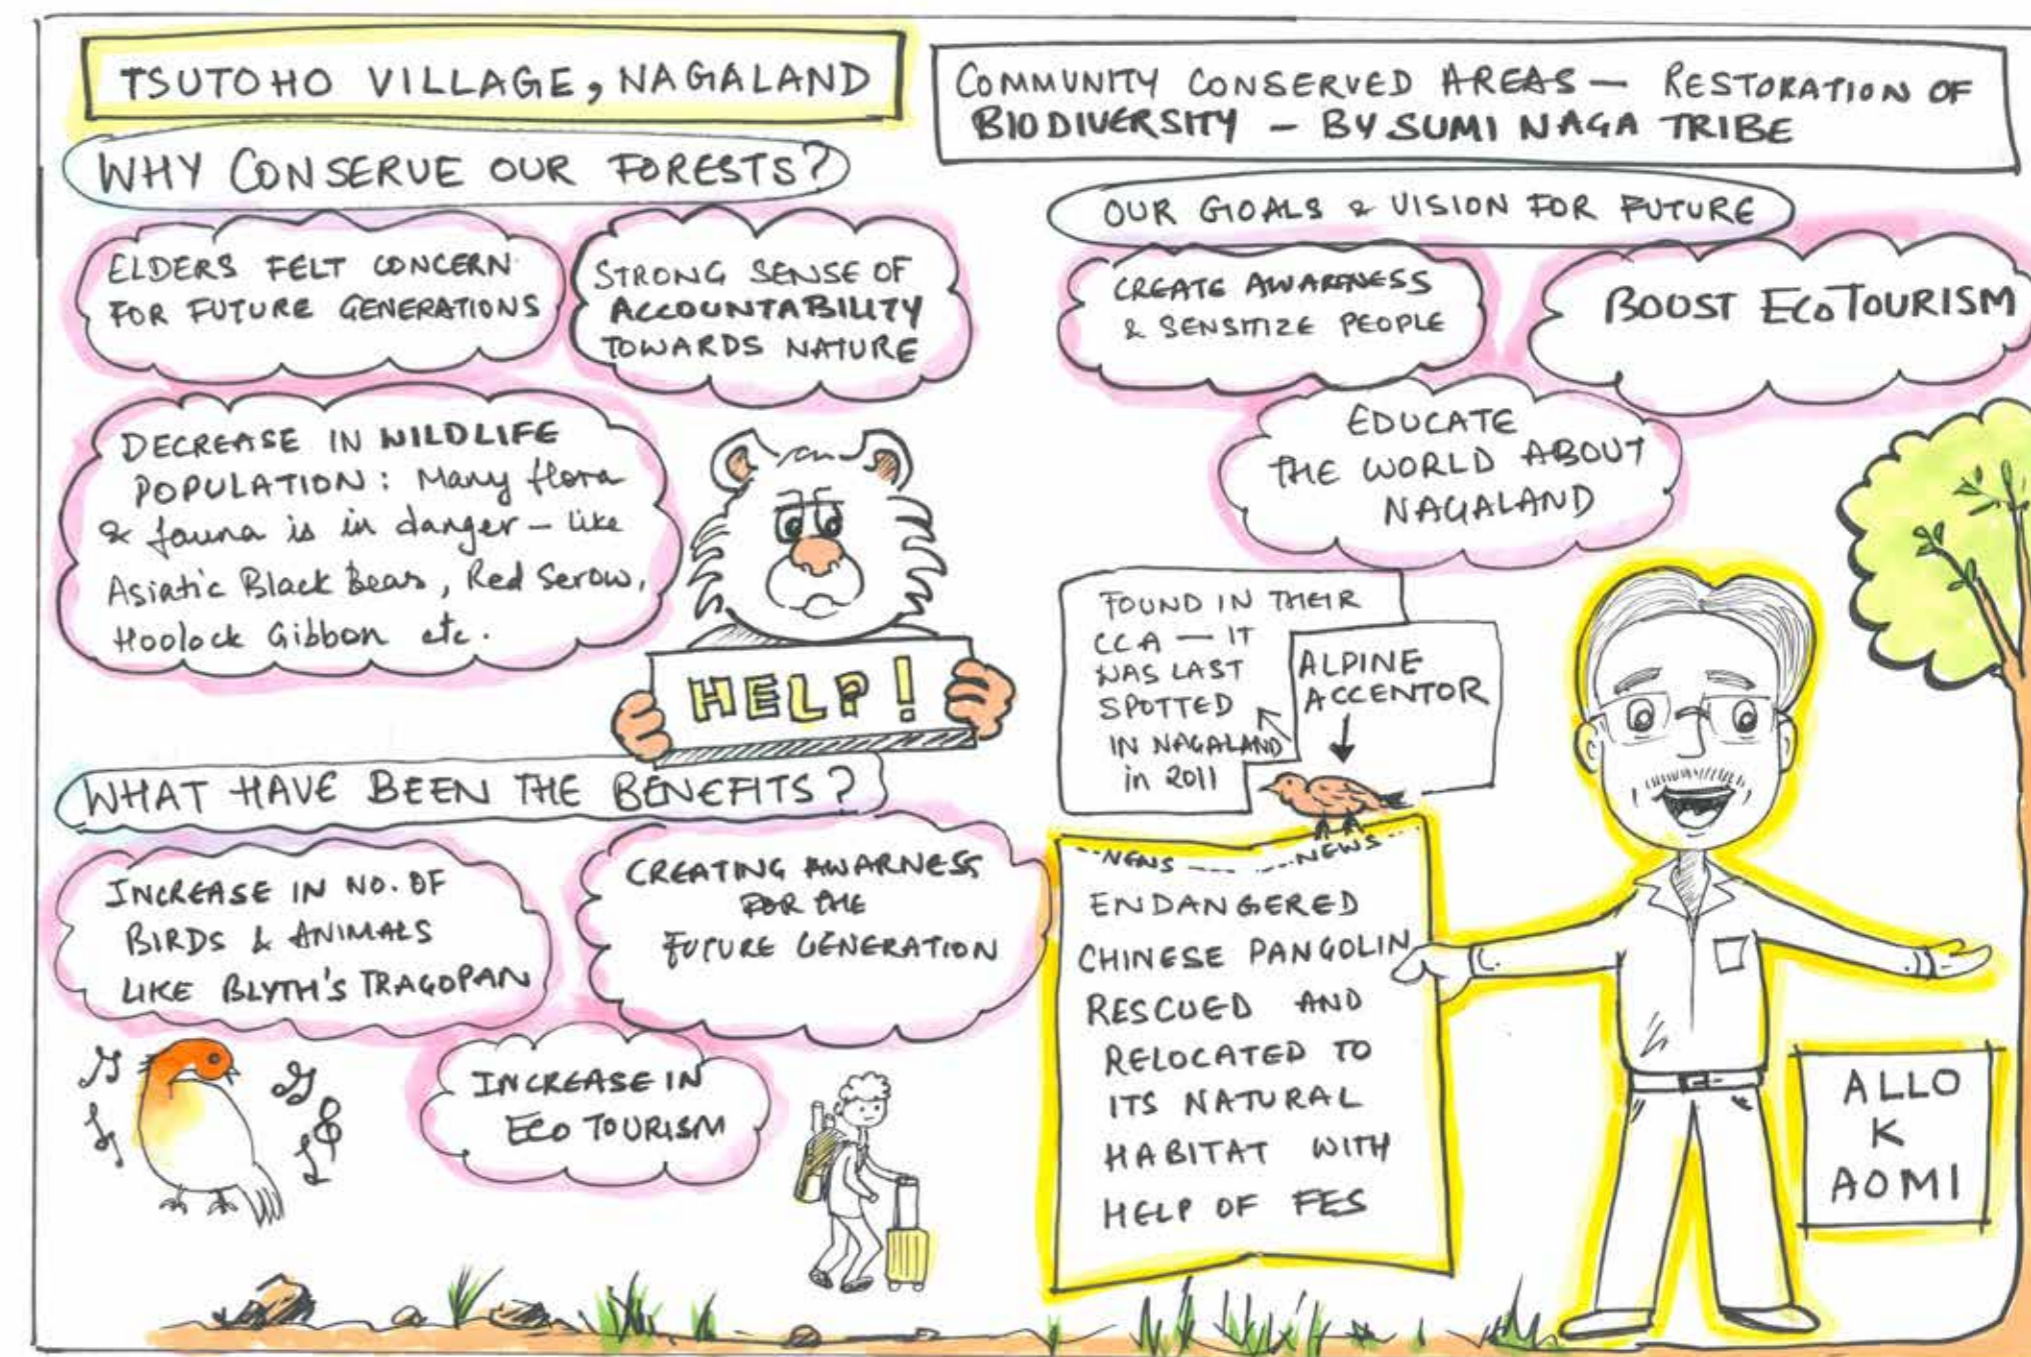 TSUTOHO VILLAGE, NAGALAND
COMMUNITY CONSERVED AREAS — RESTORATION OF
BIODIVERSITY - BY SUMI NAGA TRIBE
WHY CONSERVE OUR FORESTS?
ELDERS FELT CONCERN
FOR FUTURE GENERATIONS
STRONG SENSE OF
ACCOUNTABILITY
TOWARDS NATURE
DECREASE IN WILDLIFE
POPULATION: Many flora
& fauna is in danger - like
Asiatic Black Bear, Red Serow,
Hoolock Gibbon etc.
HELP!
WHAT HAVE BEEN THE BENEFITS?
INCREASE IN NO. OF
BIRDS & ANIMALS
LIKE BLYTH'S TRAGOPAN
CREATING AWARNESS
FOR THE
FUTURE GENERATION
INCREASE IN
ECO TOURISM
OUR GOALS & VISION FOR FUTURE
CREATE AWARENESS
& SENSITIZE PEOPLE
BOOST ECOTOURISM
EDUCATE
THE WORLD ABOUT
NAGALAND
FOUND IN THEIR
CCA — IT
WAS LAST
SPOTTED
IN NAGALAND
in 2011
ALPINE
ACCENTOR
NEWS NEWS
ENDANGERED
CHINESE PANGOLIN
RESCUED AND
RELOCATED TO
ITS NATURAL
HABITAT WITH
HELP OF FES
ALLO
K
AOMI